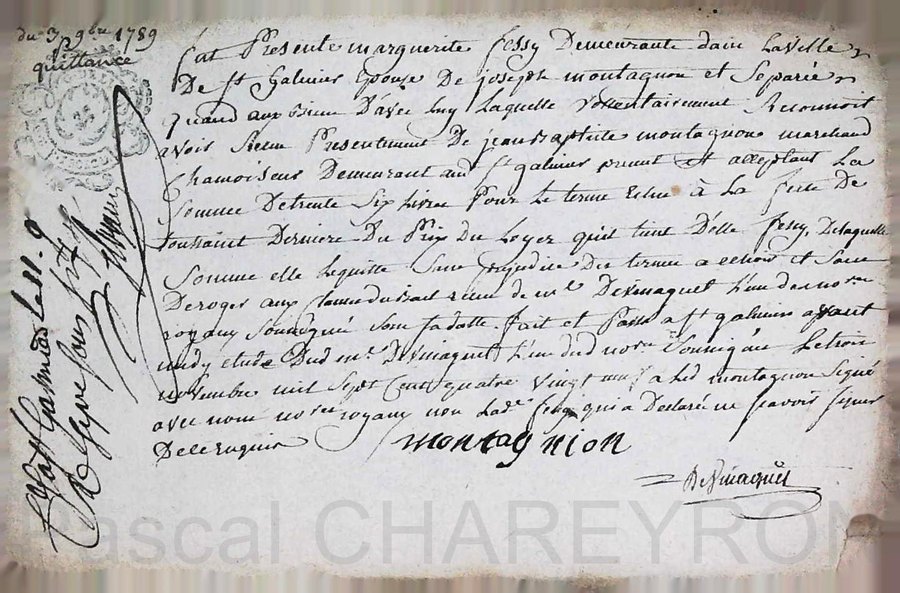 du 3 9bre 1789
quittance
fut Presente marguerite fessy Demeurante dans La Ville
De St Galmier Epouse De joseph montagnon et Separée
quand aux biens D'avec luy Laquelle vollontairement Reconnoit
avoir Recu Presentement De jean Baptiste montagnon marchand
Chamoiseur Demeurant aud St galmier présent et acceptant La
Somme De trente Six Livres Pour Le terme Echu à La feste De
toussaint Derniere Du Prix Du Loyer qu'il tient D'elle fessy, De laquelle
Somme elle Le quitte Sans prejudice Du terme a echoir et Sans
Deroger aux du bail recu de me Devinaquet L'un des nores
royaux Soussigné Sous Sa datte. fait et Passé a St galmier avant
midy etude Dud me Devinaquet L'un des nores Soussignés Le trois
novembre mil Sept Cent quatre Vingt neuf a Led montagnon Signé
avec nous nores royaux non Lade fessy qui a Declaré ne Scavoir Signer
De ce Enquise
montagnion
Devinaquet
Pascal CHAREYRON